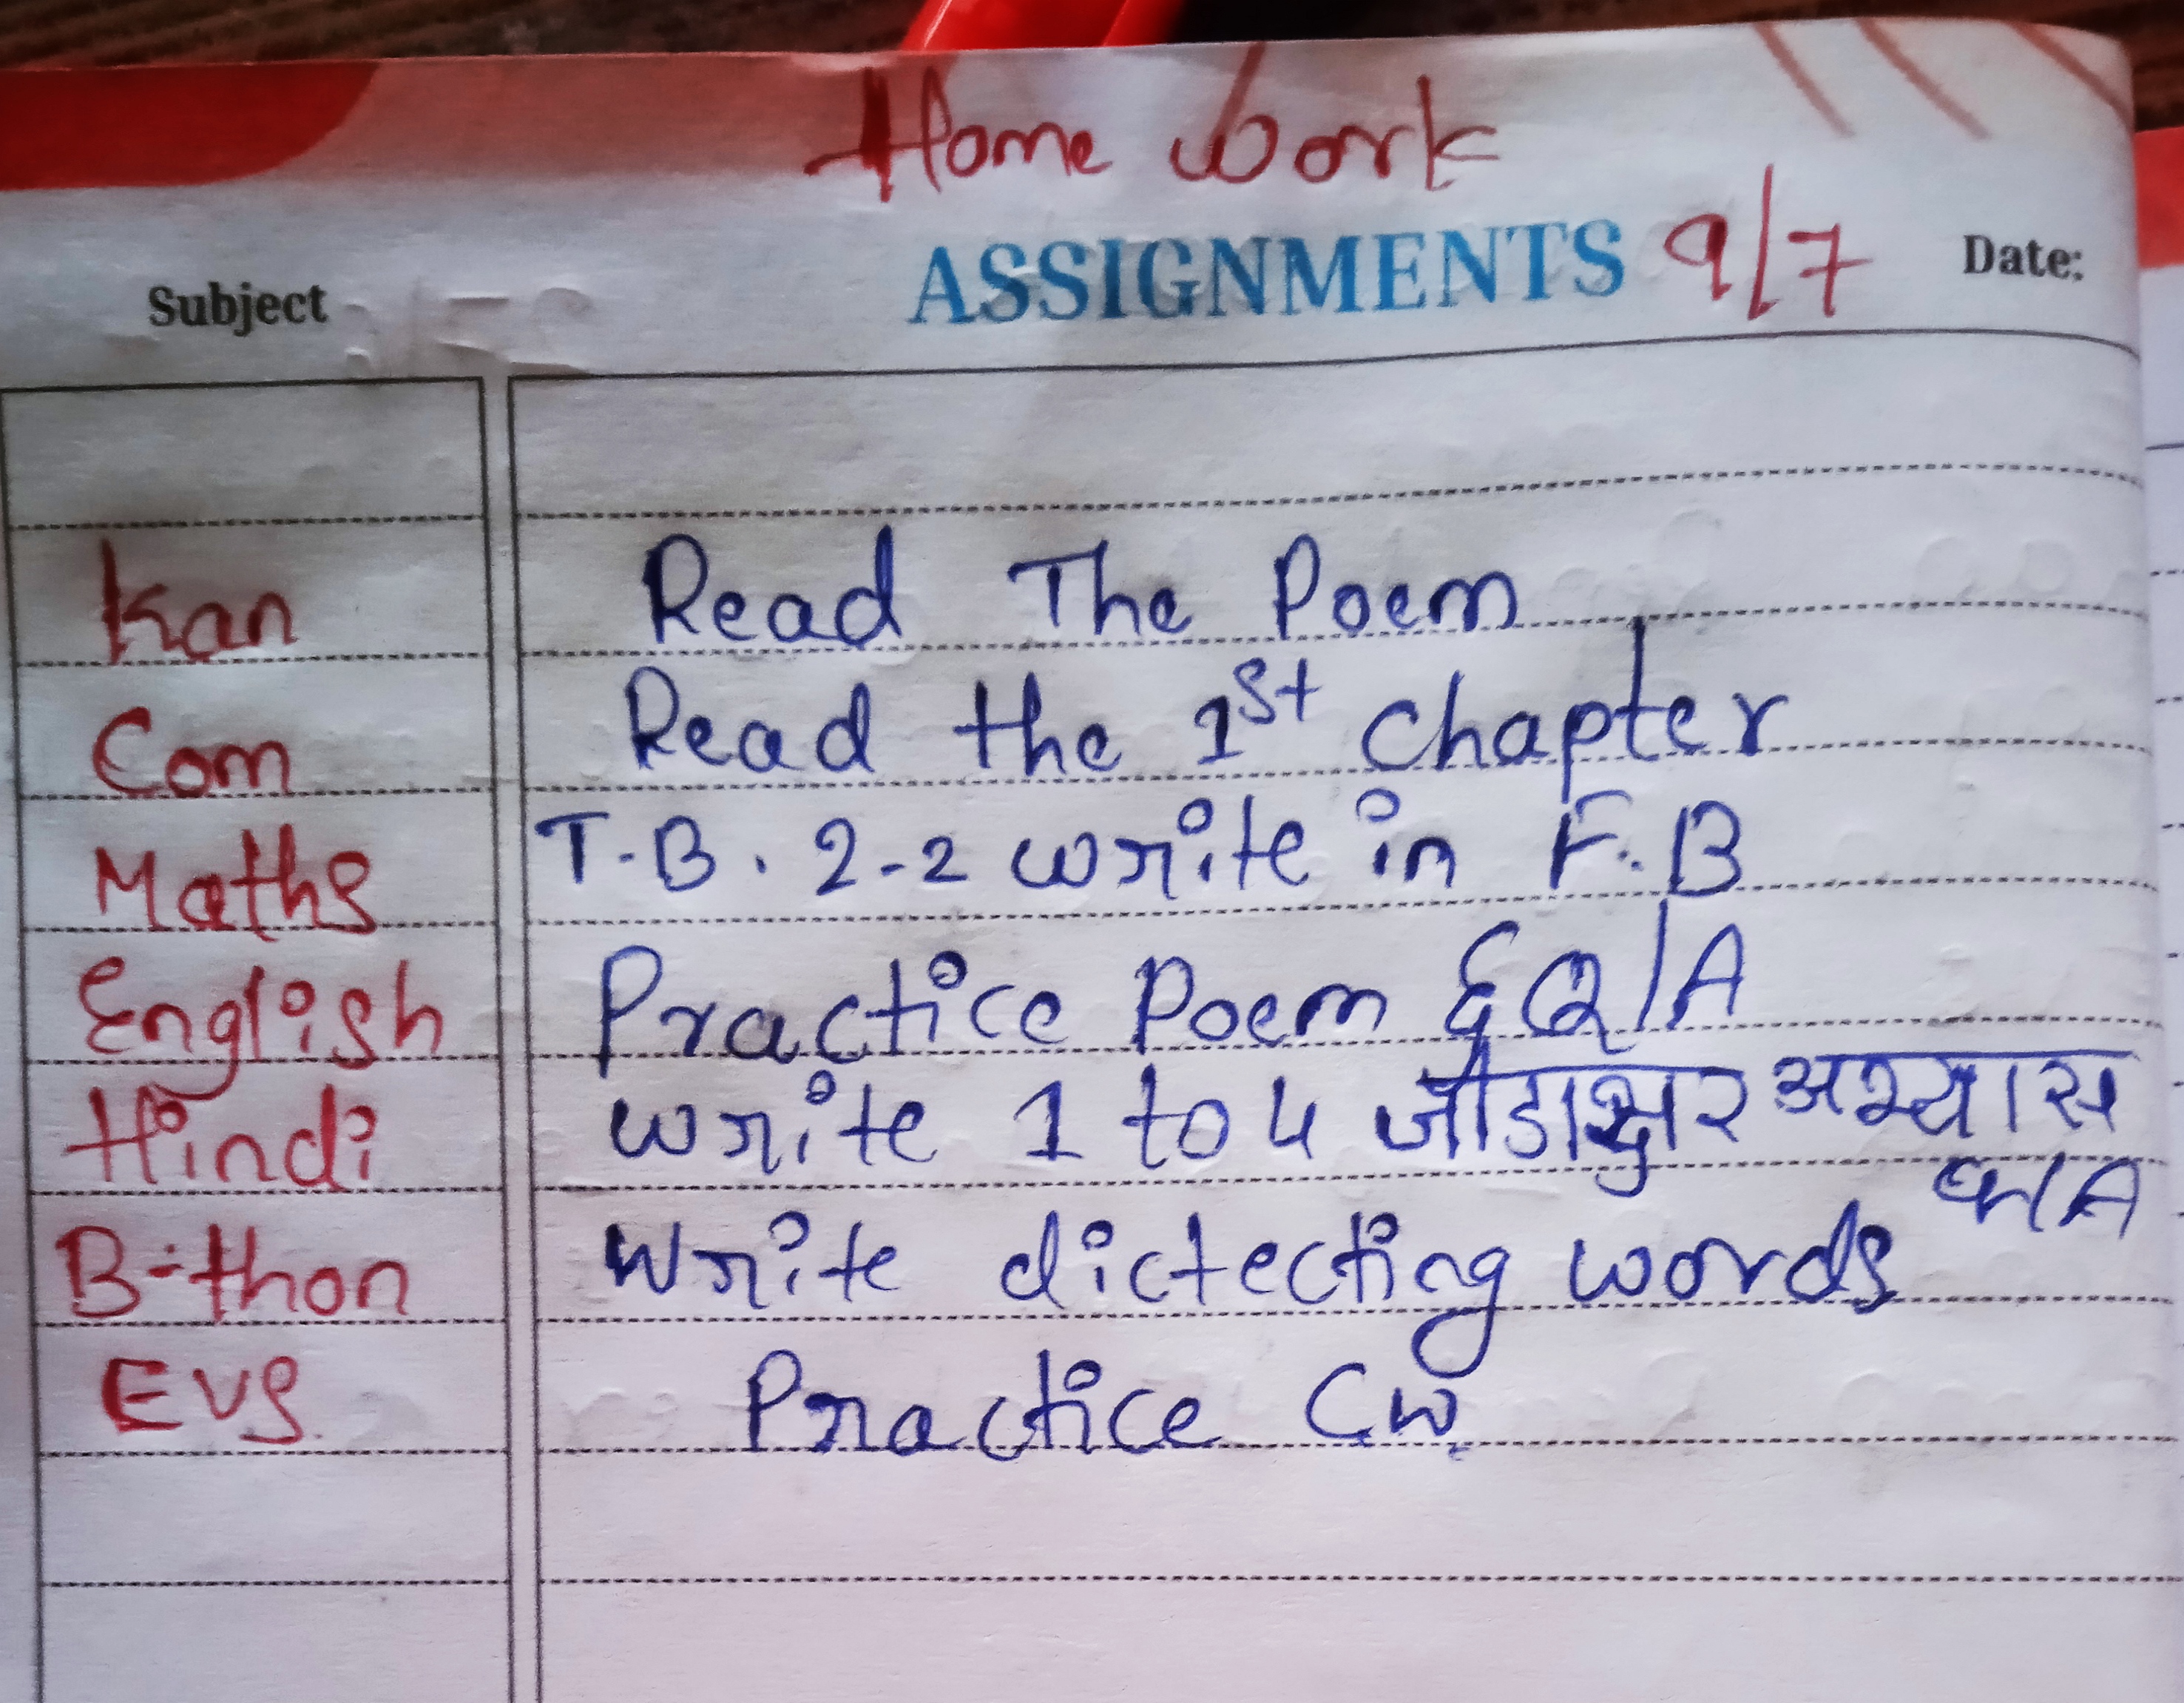 Home Work
Subject ASSIGNMENTS 9/7 Date:
Kan Read The Poem
Com Read the 1st chapter
Maths T.B. 2-2 write in F.B
English Practice Poem & Q/A
Hindi write 1 to 4 जोडाक्षर अभ्यास
B-thon Write dictecting words
Evs Practice Cw